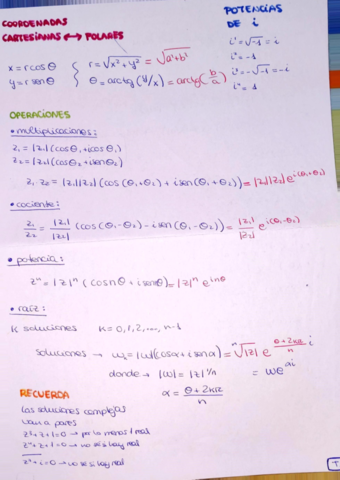 COORDENADAS
CARTESIANAS ↔ POLARES
x = r cosθ
y = r senθ
{ r = √(x²+y²) = √(a²+b²)
θ = arctg(y/x) = arctg(b/a)
POTENCIAS
DE i
i¹ = √-1 = i
i² = -1
i³ = -√-1 = -i
i⁴ = 1
OPERACIONES
• multiplicaciones:
z₁ = |z₁|(cosθ₁+icosθ₁)
z₂ = |z₂|(cosθ₂+isenθ₂)
z₁·z₂ = |z₁||z₂|(cos(θ₁+θ₂) + isen(θ₁+θ₂)) = |z₁||z₂|e^i(θ₁+θ₂)
• cociente:
z₁/z₂ = |z₁|/|z₂| (cos(θ₁-θ₂) - isen(θ₁-θ₂)) = |z₁|/|z₂| e^i(θ₁-θ₂)
• potencia:
zⁿ = |z|ⁿ (cosnθ + isenθ) = |z|ⁿ e^inθ
• raíz:
K soluciones K = 0, 1, 2, ..., n-1
soluciones → ω = |ω|(cosα+isenα) = ⁿ√|z| e^(θ+2kπ)/n i
donde → |ω| = |z|^1/n = ωe^αi
α = (θ+2kπ)/n
RECUERDA
Las soluciones complejas
van a pares